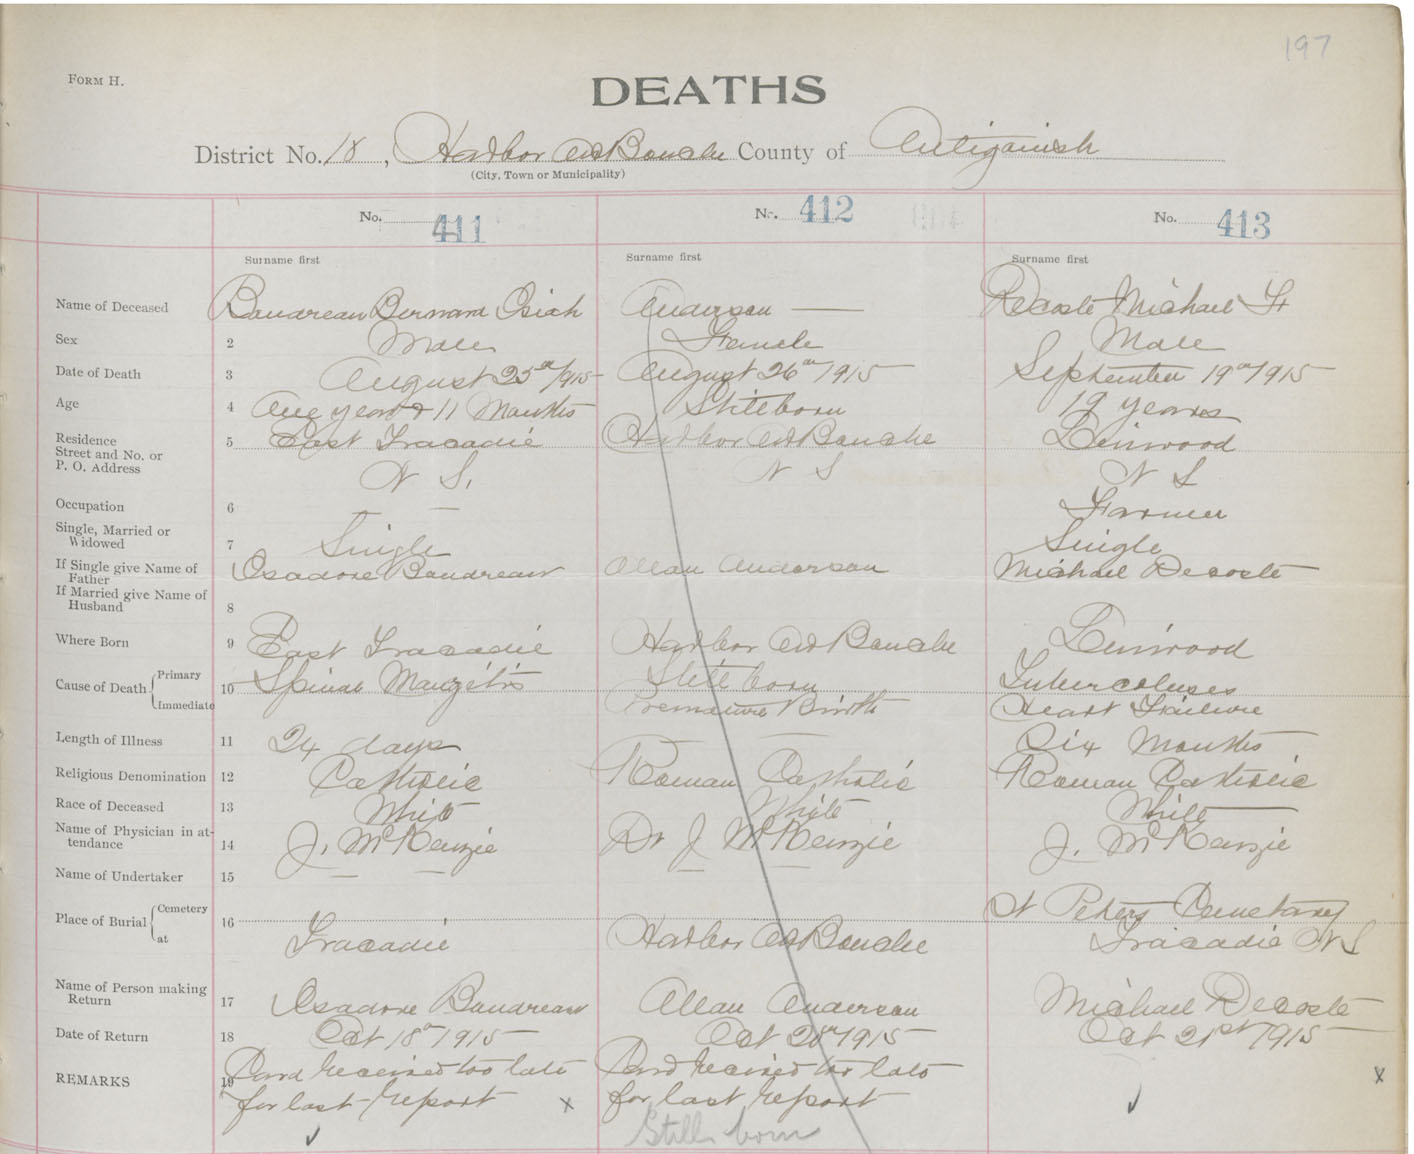 197
FORM H.
DEATHS
District No. 18, Harbor Au Bouche County of Antigonish
(City, Town or Municipality)
No. 411 No. 412 No. 413
Surname first Surname first Surname first
Name of Deceased Boudreau Bernard Anderson — Decoste Michael
Sex 2 Male Female Male
Date of Death 3 August 25th 1915 August 26th 1915 September 19th 1915
Age 4 One year & 11 Months Stillborn 19 years
Residence
Street and No. or 5 East Tracadie Harbor Au Bouche Linwood
P. O. Address N S. N S N S
Occupation 6 — — Farmer
Single, Married or
Widowed 7 Single Single
If Single give Name of
Father Isadore Boudreau Allan Anderson Michael Decoste
If Married give Name of
Husband 8
Where Born 9 East Tracadie Harbor Au Bouche Linwood
Cause of Death Primary 10 Spinal Stillborn Tuberculoses
Immediate Premature Birth Heart Failure
Length of Illness 11 24 days — Six Months
Religious Denomination 12 Catholic Roman Catholic Roman Catholic
Race of Deceased 13 White White White
Name of Physician in at-
tendance 14 J. McKenzie Dr J McKenzie J. McKenzie
Name of Undertaker 15 — — —
Place of Burial Cemetery 16 St Peters Cemetary
at Tracadie Harbor Au Bouche Tracadie N S
Name of Person making
Return 17 Isadore Boudreau Allan Anderson Michael Decoste
Date of Return 18 Oct 18th 1915 Oct 20th 1915 Oct 21st 1915
REMARKS 19 Card received too late Card received too late
for last report x for last report x
Still born